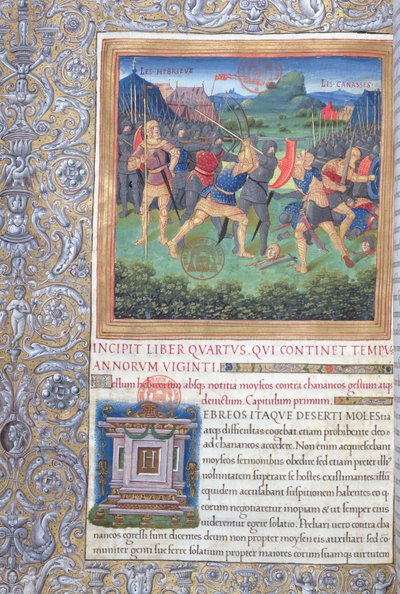 LES HEBRIEVX
LES CANASSES
INCIPIT LIBER QVARTVS. QVI CONTINET TEMPV
ANNORVM VIGINTI.
ellum hebreorum absq; notitia moyseos contra chananeos gestum atq;
deuictum. Capitulum primum.
H
EBREOS ITAQVE DESERTI MOLESTIA
atq; difficultas cogebat etiam prohibente deo
ad chananeos accedere. Non enim acquiescebant
moyseos sermonibus obedire sed etiam preter illi9
voluntatem superare se hostes existimantes: illu
equidem accusabant suspitionem habentes q
eorum negotiaretur inopiam & ut semper eius
viderentur egere solatio. Preliari uero contra cha
naneos egressi sunt dicentes deum non propter moysen eis auxiliari: sed co
muniter genti sue ferre solatium propter maiores eorum suamq; uirtutem